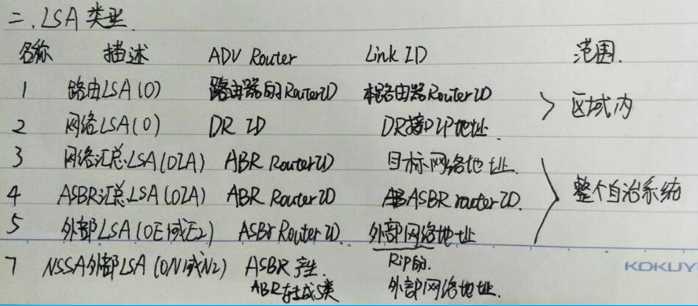 二、LSA类型.
名称 描述 ADV Router Link ID 范围.
1 路由LSA(O) 路由器的RouterID 本路由器RouterID 区域内
2 网络LSA(O) DR ID DR接口IP地址.
3 网络汇总LSA(OIA) ABR RouterID 目标网络地址.
4 ASBR汇总LSA(OIA) ABR RouterID ASBR routerID. 整个自治系统
5 外部LSA(OE1或E2) ASBr RouterID. 外部网络地址
7 NSSA外部LSA(ON1或N2) ASBR产生. Rip的.
ABR转成5类 外部网络地址.
KOKUY